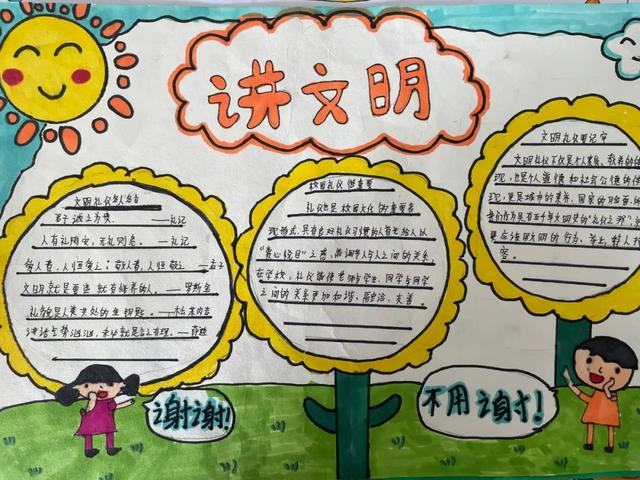 讲文明
文明礼仪名人名言
君子诚之为贵。——礼记
人有礼则安,无礼则危。——礼记
爱人者,人恒爱之;敬人者,人恒敬之——孟子
文明就是要造就有修养的人。——罗斯金
礼貌是人类共处的金钥匙。——松苏内吉
讲话气势汹汹,未必就是言之有理。——萨迪
校园礼仪很重要
礼仪也是校园文化的重要表
现形式,只有良好礼仪习惯的人首先给人以
“赏心悦目”之感,能调节人与人之间的关系
在学校,礼仪能使老师与学生、同学与同学
之间的关系更加和谐、融洽、友善。
文明礼仪要记牢
文明礼仪不仅是个人素质、教养的体
现,也是个人道德和社会公德的体
现,更是城市的素养、国家的脸面,所
我们作为具有五千年文明史的“礼仪之邦”,
更应该用文明的行为、举止,待人
谢谢!
不用谢!